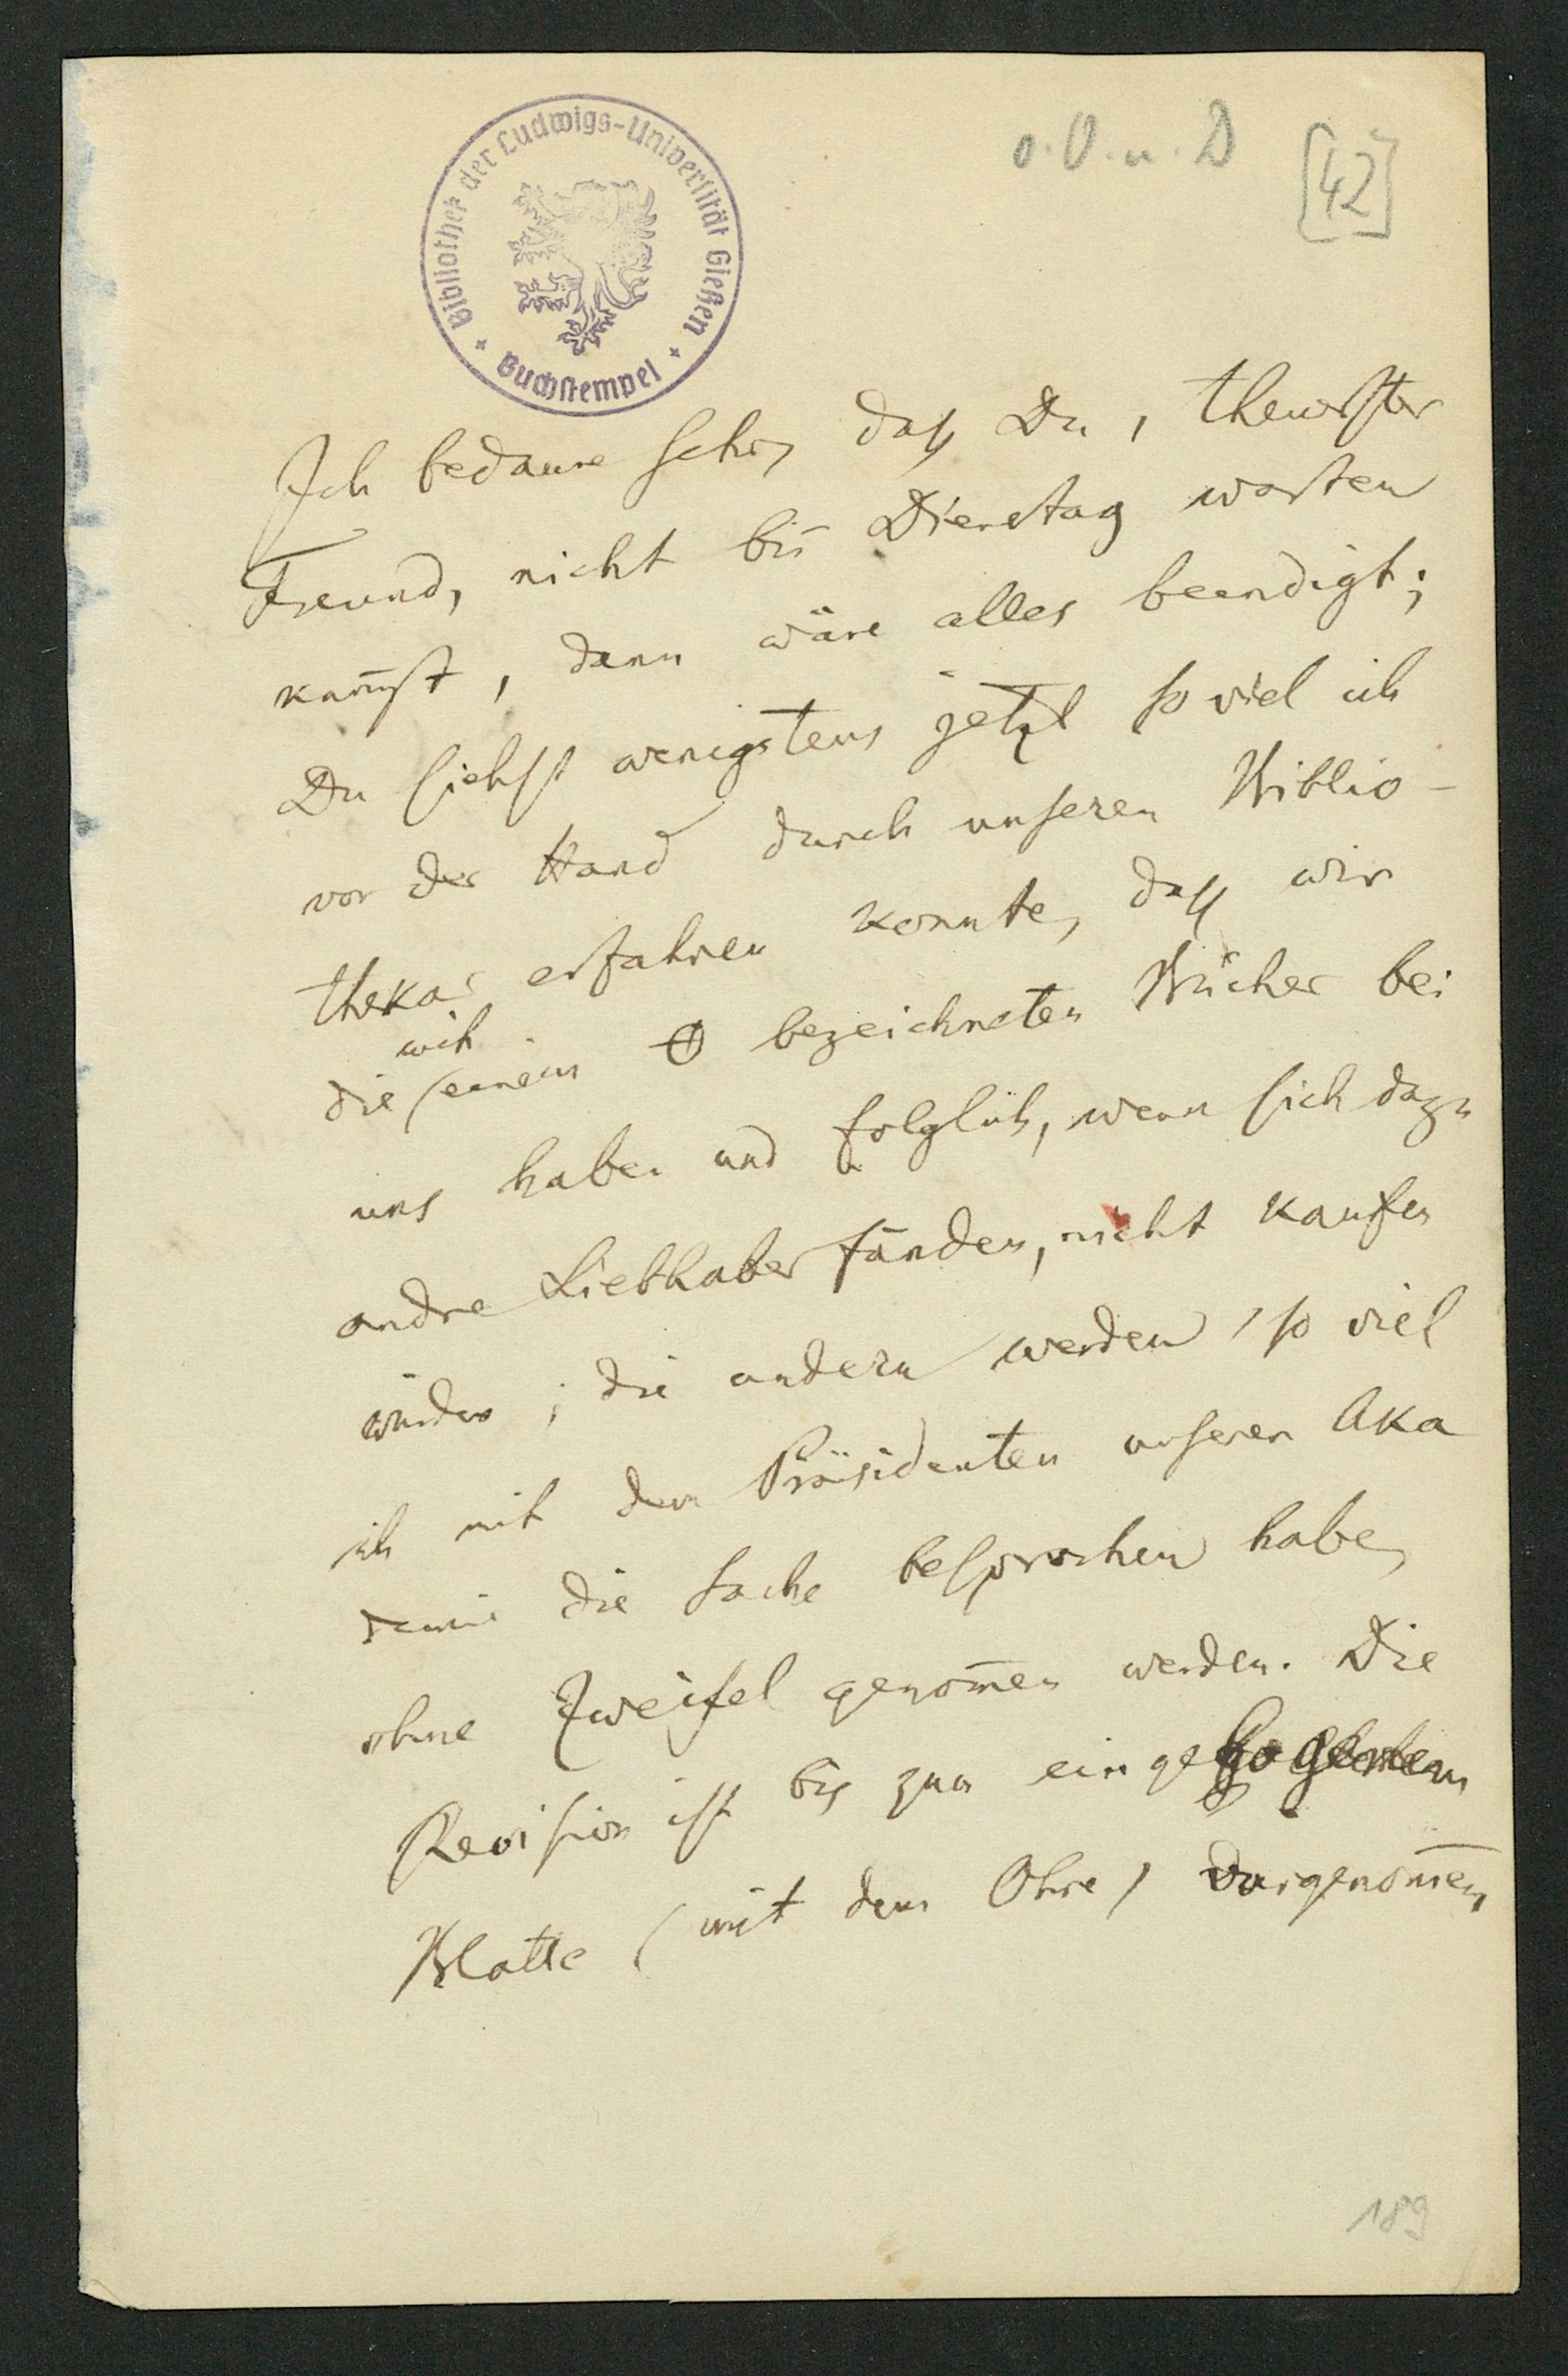 o. O. u. D
[42]
Bibliothek der Ludwigs-Universität Gießen
Buchstempel
Ich bedaure sehr, daß Du, theuerster
Freund, nicht bis Dienstag warten
kannst, dann wäre alles beendigt;
Du siehst wenigstens jetzt so viel ich
vor der Hand durch unseren Biblio-
thekar erfahren konnte, daß wir
mit
die (einem O bezeichneten Bücher bei
uns haben und folglich, wenn sich dazu
andre Liebhaber fänden, nicht kaufen
würden; die andern werden, so viel
ich mit dem Präsidenten unserer Aka
demie die Sache besprochen habe,
ohne Zweifel genommen werden. Die
Revision ist bis zum eingebogenen
Blatte (mit dem Ohre) vorgenommen,
189